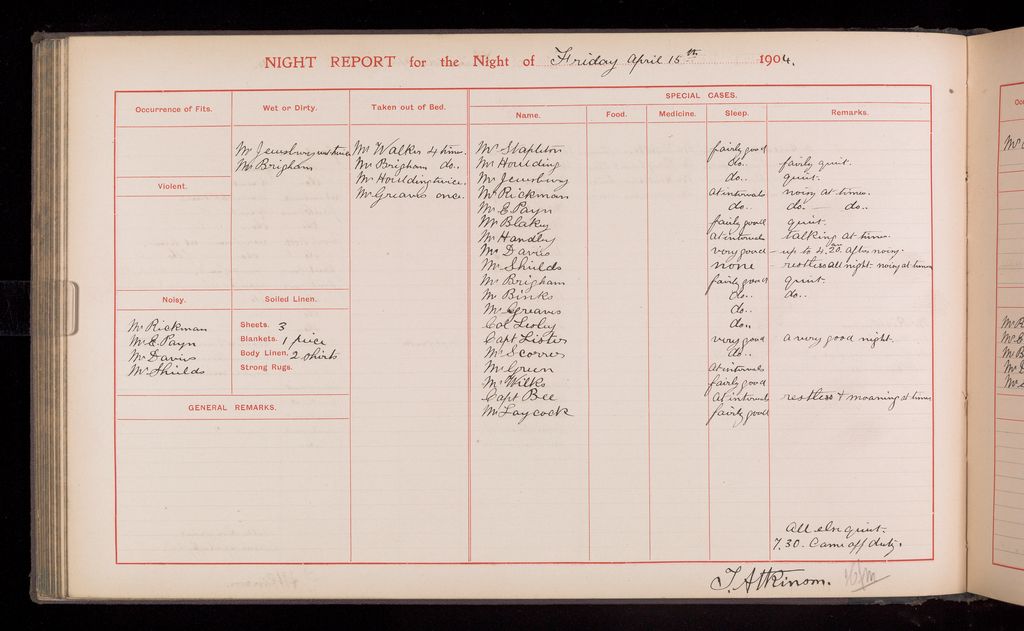 NIGHT REPORT for the Night of Friday April 15th 1904.
Occurrence of Fits.
Violent.
Noisy.
Mr Rickman
Mr E. Payn
Mr Davies
Mr Shields
Wet or Dirty.
Mr Jewsbury wet twice
Mr Brigham
Soiled Linen.
Sheets. 3
Blankets. 1 piece
Body Linen. 2 shirts
Strong Rugs.
GENERAL REMARKS.
Taken out of Bed.
Mr Walker 4 times.
Mr Brigham do..
Mr Houlding twice.
Mr Greaves once.
SPECIAL CASES.
Name. Food. Medicine. Sleep. Remarks.
Mr Stapleton fairly good
Mr Houlding do.. fairly quiet.
Mr Jewsbury do.. quiet.
Mr Rickman at intervals noisy at times.
Mr E. Payn do.. do. — do..
Mr Blakey fairly good quiet.
Mr Handley at intervals talking at times.
Mr Davies very good up to 4.20 am after noisy.
Mr Shields none restless all night - noisy at times
Mr Brigham fairly good quiet.
Mr Binks do.. do..
Mr Greaves do..
Col do..
Capt Lister very good a very good night.
Mr Scorres do..
Mr Green at intervals
Mr Wilks fairly good
Capt Bee at intervals restless & moaning at times
Mr Laycock fairly good
All else quiet.
7.30. Came off duty.
T. Atkinson.